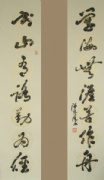 学海無涯苦作舟
書山有路勤为徑